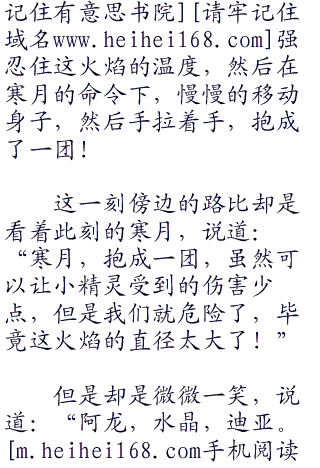 记住有意思书院][请牢记住
域名www.heihei168.com]强
忍住这火焰的温度，然后在
寒月的命令下，慢慢的移动
身子，然后手拉着手，抱成
了一团！
这一刻傍边的路比却是
看着此刻的寒月，说道：
“寒月，抱成一团，虽然可
以让小精灵受到的伤害少
点，但是我们就危险了，毕
竟这火焰的直径太大了！”
但是却是微微一笑，说
道：“阿龙，水晶，迪亚。
[m.heihei168.com手机阅读